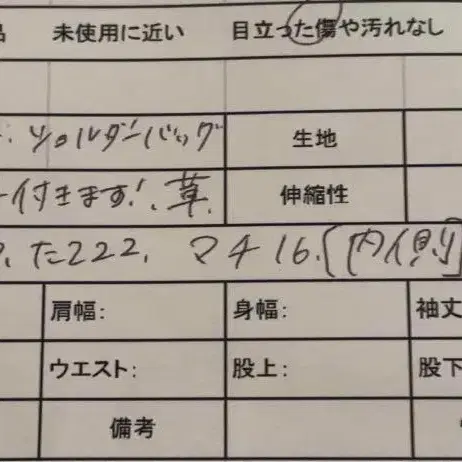 品 未使用に近い 目立った傷や汚れなし
ショルダーバッグ 生地
付きます!、革、 伸縮性
、た222、マチ16、[内側]
肩幅: 身幅: 袖丈
ウエスト: 股上: 股下
備考